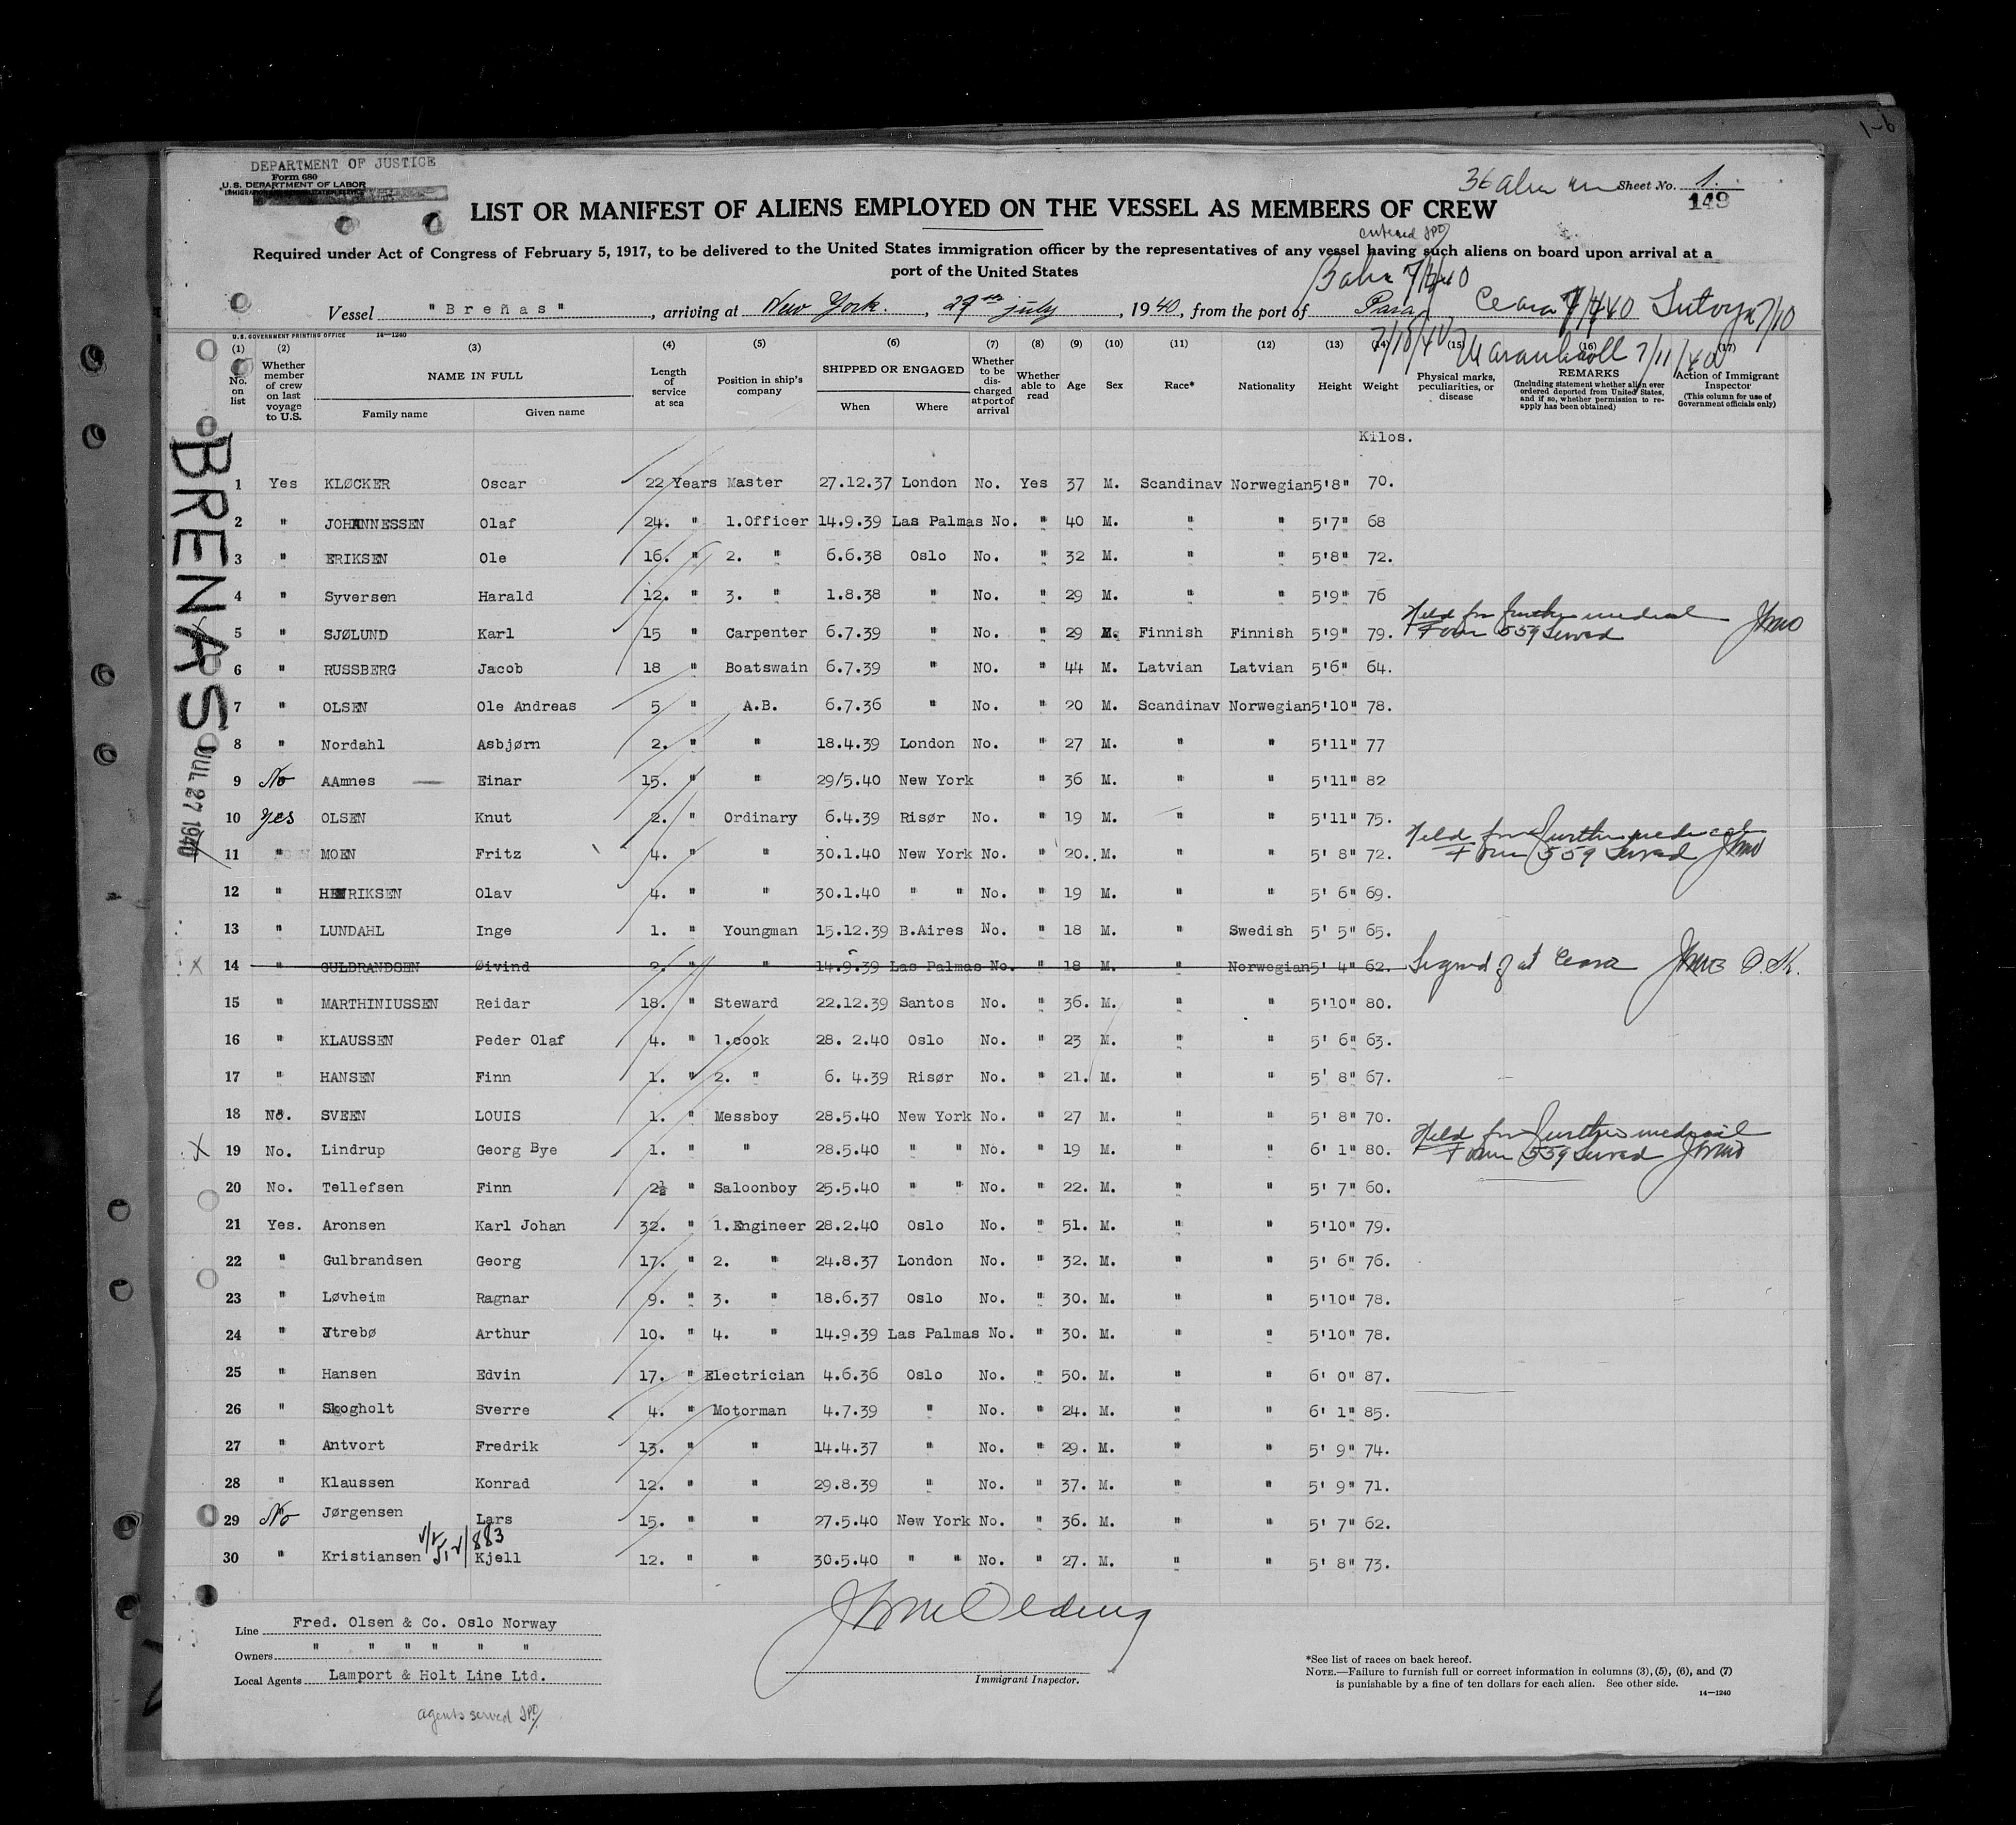 1-6
DEPARTMENT OF JUSTICE
Form 680
U.S. DEPARTMENT OF LABOR
36 Sheet No. 1.
149
LIST OR MANIFEST OF ALIENS EMPLOYED ON THE VESSEL AS MEMBERS OF CREW
entered
Required under Act of Congress of February 5, 1917, to be delivered to the United States immigration officer by the representatives of any vessel having such aliens on board upon arrival at a
port of the United States
Vessel "Breñas", arriving at New York., 29th july, 1940, from the port of Para, Ceara 7/7/40
U.S. GOVERNMENT PRINTING OFFICE 14—1240
7/10/40 Maranhao 7/11/40
(1) (2) (3) (4) (5) (6) (7) (8) (9) (10) (11) (12) (13) (14) (15) (16) (17)
No. on list
Whether member of crew on last voyage to U.S.
NAME IN FULL
Family name Given name
Length of service at sea
Position in ship's company
SHIPPED OR ENGAGED
When Where
Whether to be discharged at port of arrival
Whether able to read
Age Sex Race* Nationality Height Weight
Physical marks, peculiarities, or disease
REMARKS
(Including statement whether alien ever ordered deported from United States, and if so, whether permission to reapply has been obtained)
Action of Immigrant Inspector
(This column for use of Government officials only)
Kilos.
BRENAS JUL 27 1940
1 Yes KLØCKER Oscar 22 Years Master 27.12.37 London No. Yes 37 M. Scandinav Norwegian 5'8" 70.
2 " JOHANNESSEN Olaf 24. " 1.Officer 14.9.39 Las Palmas No. " 40 M. " " 5'7" 68
3 " ERIKSEN Ole 16. " 2. " 6.6.38 Oslo No. " 32 M. " " 5'8" 72.
4 " Syversen Harald 12. " 3. " 1.8.38 " No. " 29 M. " " 5'9" 76
5 " SJØLUND Karl 15 " Carpenter 6.7.39 " No. " 29 M. Finnish Finnish 5'9" 79. Held for further medical Form 559 served
6 " RUSSBERG Jacob 18 " Boatswain 6.7.39 " NO. " 44 M. Latvian Latvian 5'6" 64.
7 " OLSEN Ole Andreas 5 " A.B. 6.7.36 " No. " 20 M. Scandinav Norwegian 5'10" 78.
8 " Nordahl Asbjørn 2. " " 18.4.39 London No. " 27 M. " " 5'11" 77
9 No AAmnes Einar 15. " " 29/5.40 New York " 36 M. " " 5'11" 82
10 Yes OLSEN Knut 2. " Ordinary 6.4.39 Risør No. " 19 M. " " 5'11" 75.
11 " MOEN Fritz 4. " " 30.1.40 New York No. " 20. M. " " 5' 8" 72. Held for further medical Form 559 served
12 " HENRIKSEN Olav 4. " " 30.1.40 " " No. " 19 M. " " 5' 6" 69.
13 " LUNDAHL Inge 1. " Youngman 15.12.39 B.Aires No. " 18 M. " Swedish 5' 5" 65.
X 14 " GULBRANDSEN Øivind 2. " " 14.9.39 Las Palmas No. " 18 M. " Norwegian 5' 4" 62. Signed off at Ceara O.K.
15 " MARTHINIUSSEN Reidar 18. " Steward 22.12.39 Santos No. " 36. M. " " 5'10" 80.
16 " KLAUSSEN Peder Olaf 4. " 1.cook 28. 2.40 Oslo No. " 23 M. " " 5' 6" 63.
17 " HANSEN Finn 1. " 2. " 6. 4.39 Risør No. " 21. M. " " 5' 8" 67.
18 No. SVEEN LOUIS 1. " Messboy 28.5.40 New York No. " 27 M. " " 5' 8" 70.
X 19 No. Lindrup Georg Bye 1. " " 28.5.40 " " No. " 19 M. " " 6' 1" 80. Held for further medical Form 559 served
20 No. Tellefsen Finn 2½ " Saloonboy 25.5.40 " " No. " 22. M. " " 5' 7" 60.
21 Yes. Aronsen Karl Johan 32. " 1.Engineer 28.2.40 Oslo No. " 51. M. " " 5'10" 79.
22 " Gulbrandsen Georg 17. " 2. " 24.8.37 London No. " 32. M. " " 5' 6" 76.
23 " Løvheim Ragnar 9. " 3. " 18.6.37 Oslo No. " 30. M. " " 5'10" 78.
24 " Ytrebø Arthur 10. " 4. " 14.9.39 Las Palmas No. " 30. M. " " 5'10" 78.
25 " Hansen Edvin 17. " Electrician 4.6.36 Oslo No. " 50. M. " " 6' 0" 87.
26 " Skogholt Sverre 4. " Motorman 4.7.39 " No. " 24. M. " " 6' 1" 85.
27 " Antvort Fredrik 13. " " 14.4.37 " No. " 29. M. " " 5' 9" 74.
28 " Klaussen Konrad 12. " " 29.8.39 " No. " 37. M. " " 5' 9" 71.
29 No Jørgensen Lars 15. " " 27.5.40 New York No. " 36. M. " " 5' 7" 62.
30 " Kristiansen Kjell 12. " " 30.5.40 " " No. " 27. M. " " 5' 8" 73.
Line Fred. Olsen & Co. Oslo Norway
Owners " " " " " "
Local Agents Lamport & Holt Line Ltd.
agents served
Immigrant Inspector.
*See list of races on back hereof.
NOTE.—Failure to furnish full or correct information in columns (3), (5), (6), and (7)
is punishable by a fine of ten dollars for each alien. See other side.
14—1240